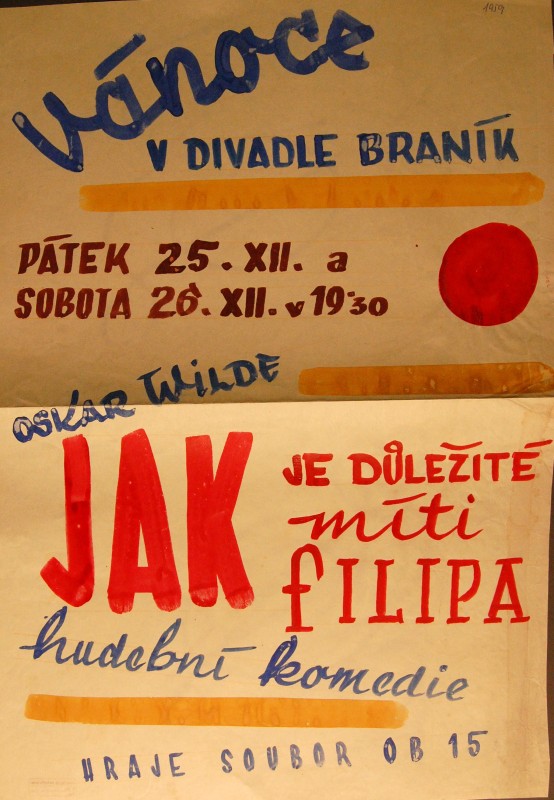 1959
Vánoce
V DIVADLE BRANÍK
PÁTEK 25. XII. a
SOBOTA 26. XII. v 19.30
OSKAR WILDE
JAK
JE DŮLEŽITÉ
míti
FILIPA
hudební komedie
HRAJE SOUBOR OB 15